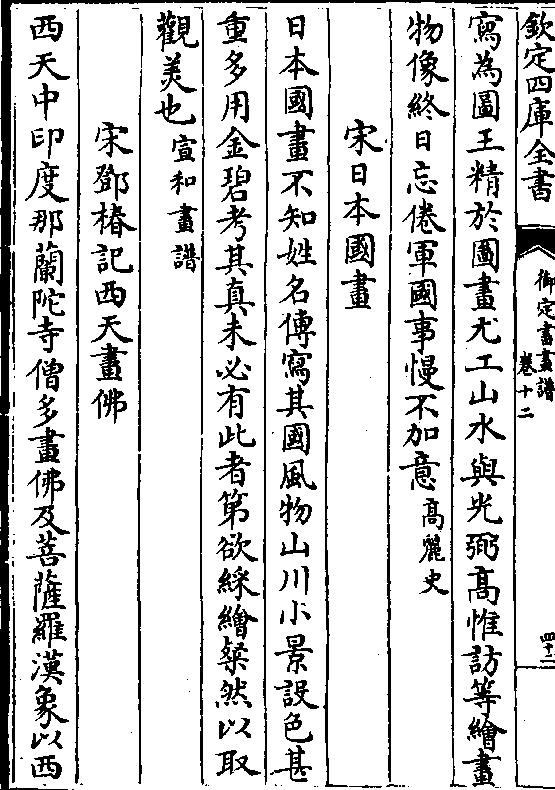 欽定四庫全書
御定書畫譜
卷十二
四十二
寫為圖王精於圖畫尤工山水與光弼高惟訪等繪畫
物像終日忘倦軍國事慢不加意高麗史
宋日本國畫
日本國畫不知姓名傳寫其國風物山川小景設色甚
重多用金碧考其真未必有此者第欲綵繪粲然以取
觀美也宣和畫譜
宋鄧椿記西天畫佛
西天中印度那蘭陀寺僧多畫佛及菩薩羅漢象以西